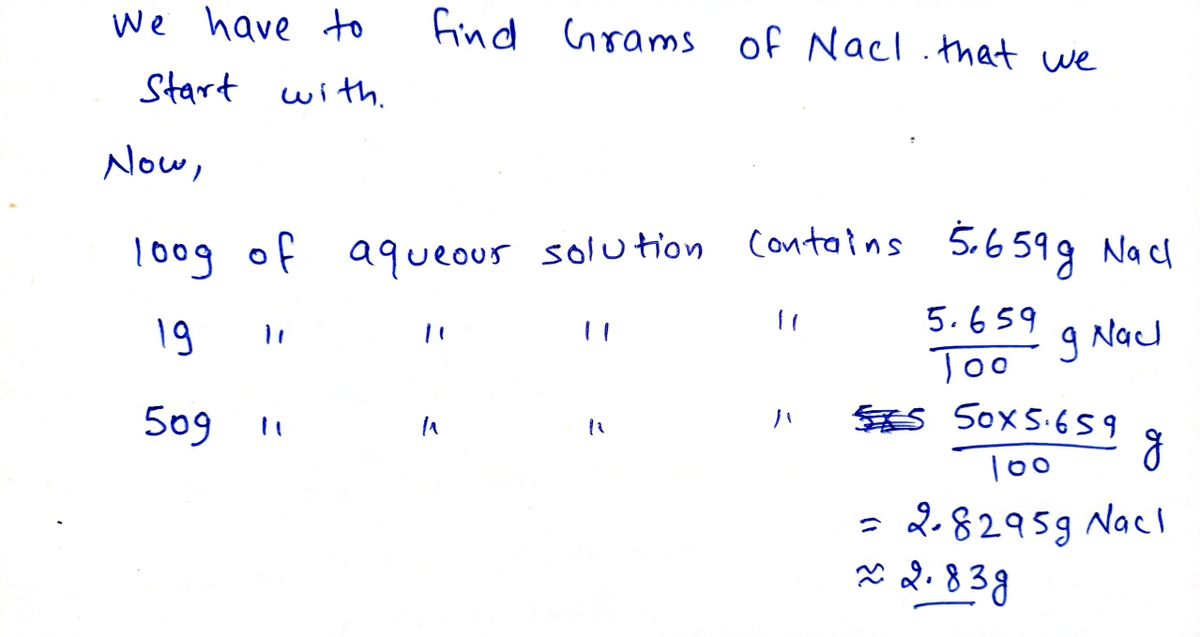 We have to find Grams of Nacl. that we
Start with.
Now,
100g of aqueour solution contains 5.659g Nacl
1g " " " " 5.659/100 g Nacl
50g " " " " 50x5.659/100 g
= 2.8295g Nacl
≈ 2.83g